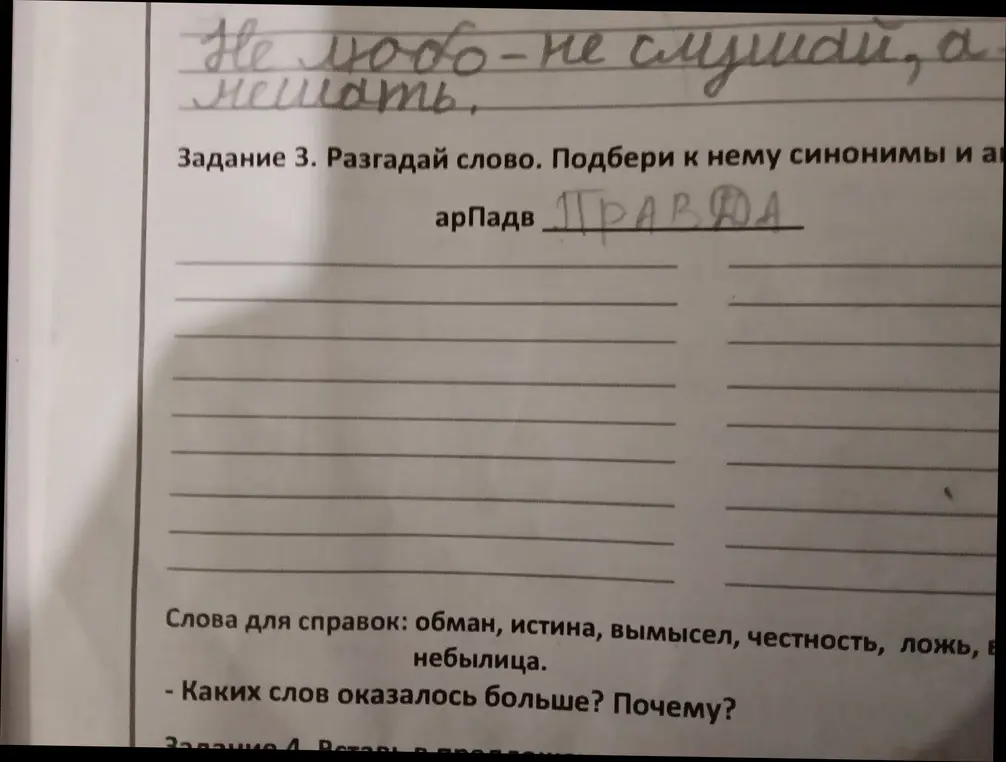 Не любо - не слушай, а
мешать.
Задание 3. Разгадай слово. Подбери к нему синонимы и
арПадв ПРАВДА
Слова для справок: обман, истина, вымысел, честность, ложь,
небылица.
- Каких слов оказалось больше? Почему?
Задание 4. Вставь в